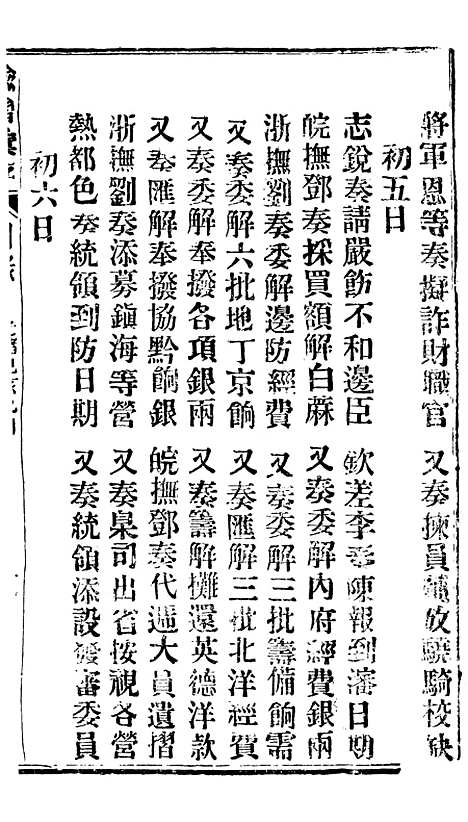 將軍恩等奏擬詐財職官　又奏揀員補放驍騎校缺
初五日
志銳奏請嚴飭不和邊臣　欽差李奏陳報到瀋日期
皖撫鄧奏採買額解白蔴　又奏委解內府經費銀兩
浙撫劉奏委解邊防經費　又奏委解三批籌備餉需
又奏委解六批地丁京餉　又奏匯解三批北洋經費
又奏委解奉撥各項銀兩　又奏籌解攤還英德洋款
又奏匯解奉撥協黔餉銀　皖撫鄧奏代遞大員遺摺
浙撫劉奏添募鎭海等營　又奏臬司出省按視各營
熱都色奏統領到防日期　又奏統領添設發審委員
初六日